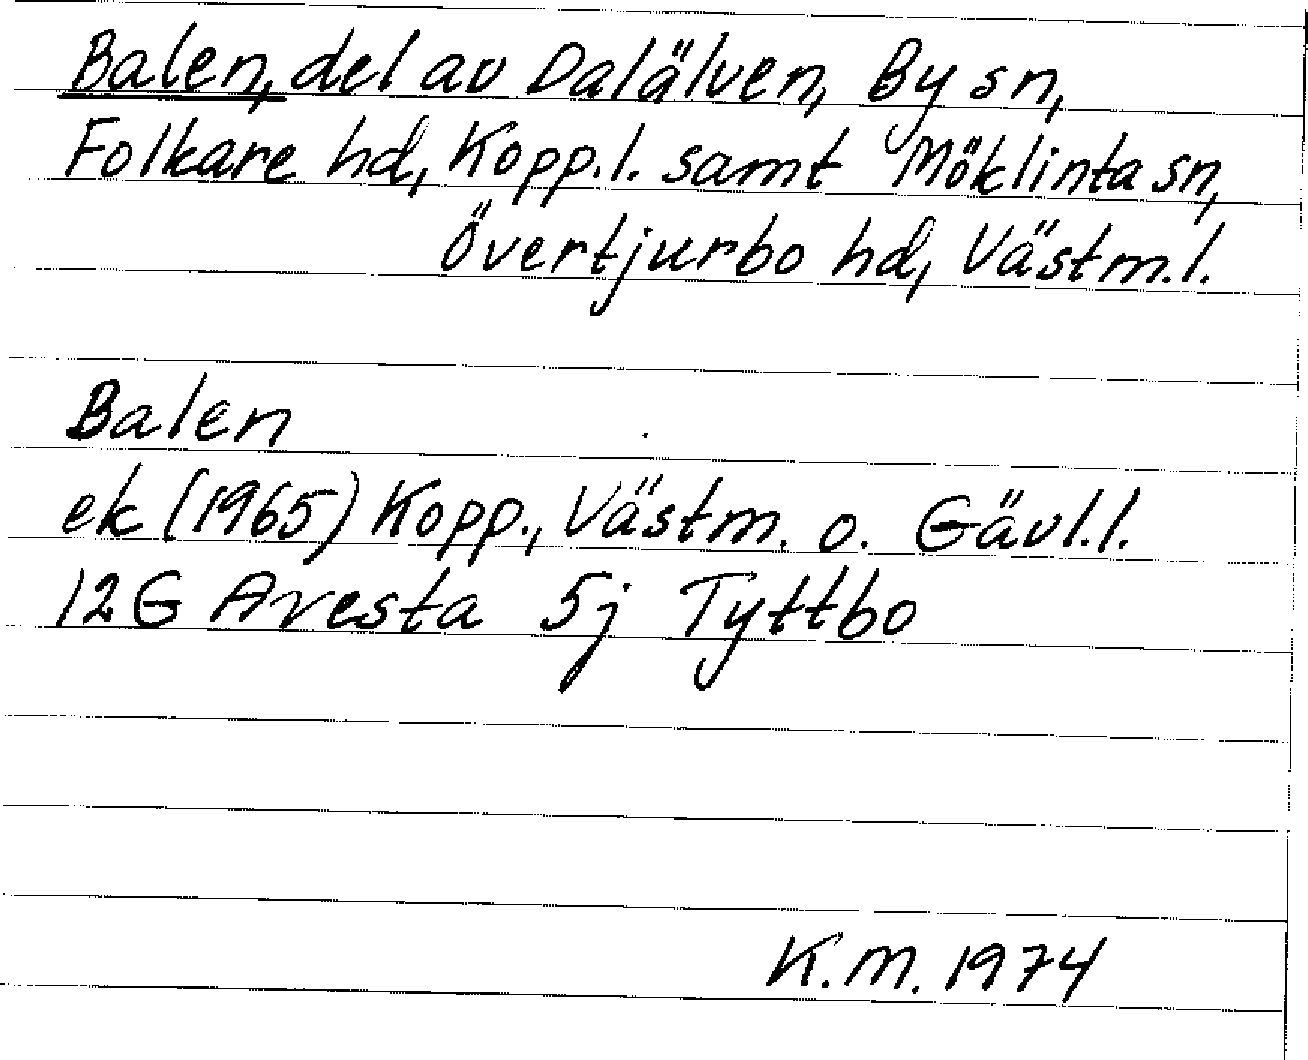 Balen, del av Dalälven, By sn,
Folkare hd, Kopp.l. samt Möklinta sn,
Övertjurbo hd, Västm.l.
Balen
ek (1965) Kopp., Västm. o. Gävl.l.
12G Avesta 5j Tyttbo
K.M. 1974